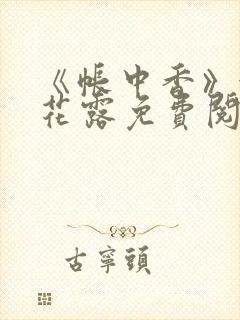 《帳中香》
花露免費閱
古寧頭